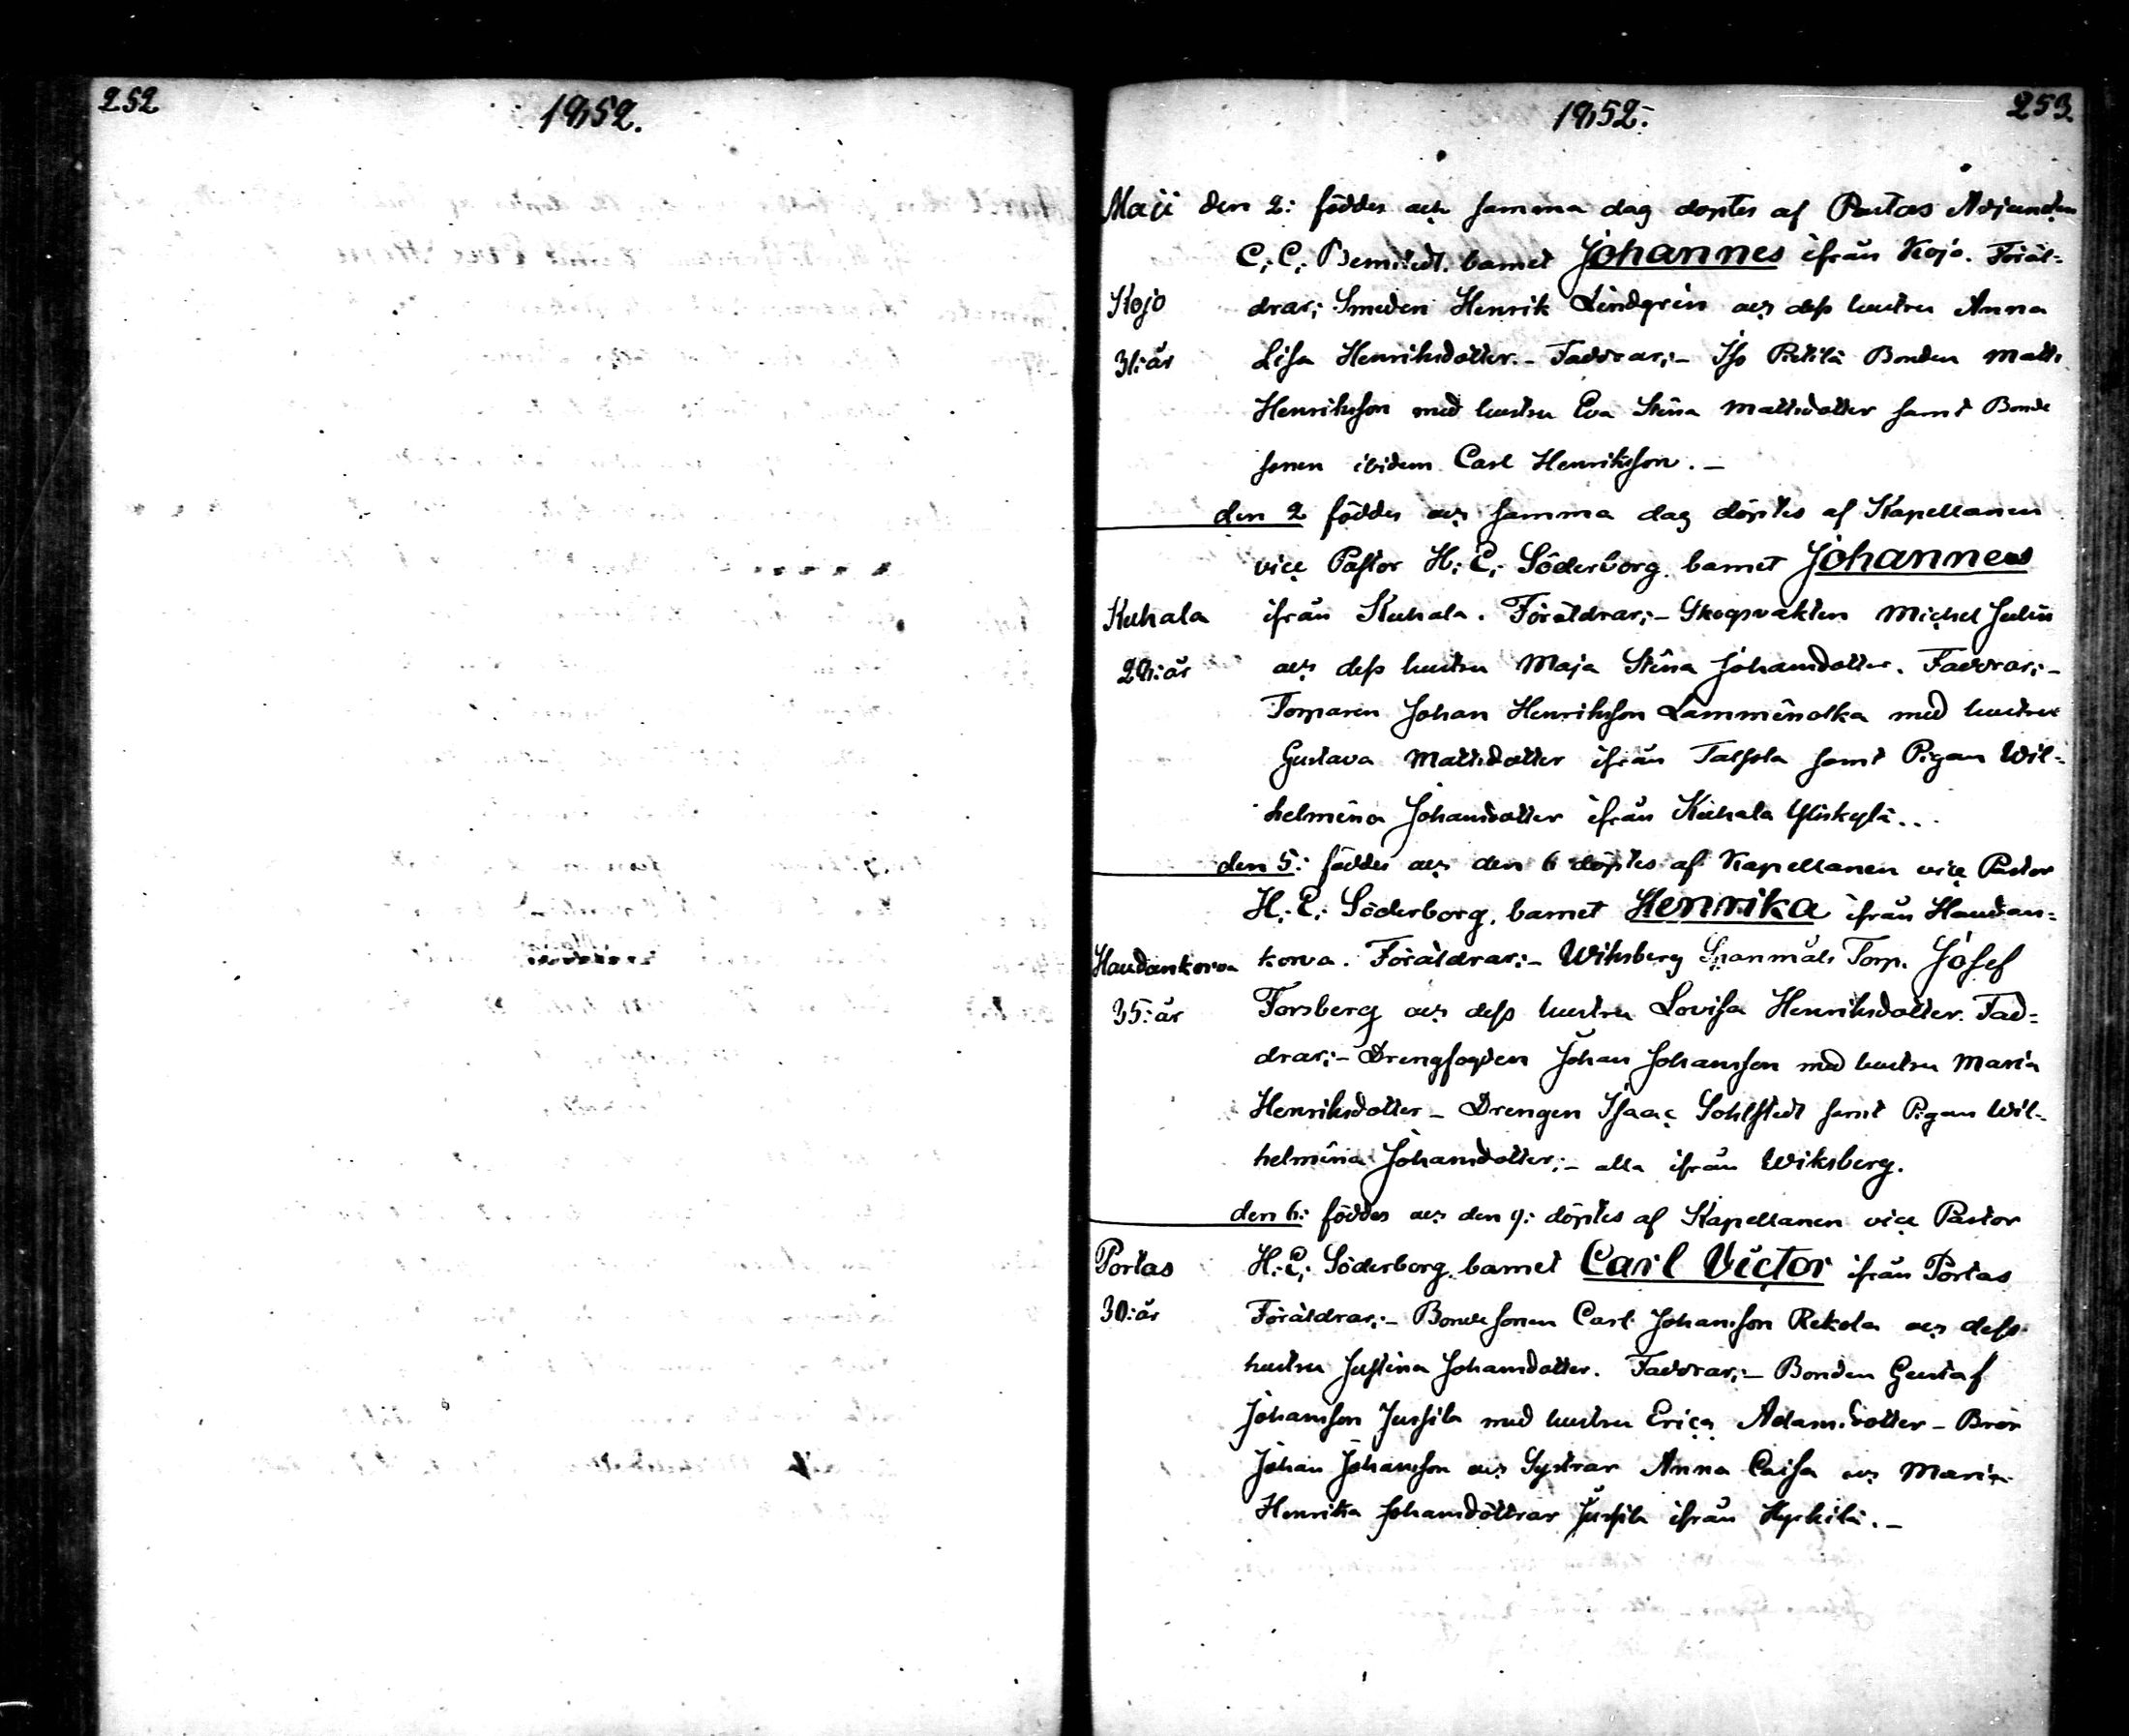 252
1852.
1852.
253.
Maji den 2: föddes och samma dag döptes af Pastors Adjuncten
C. C. barnet Johannes ifrån Kojo. Föräl-
Kojo drar; Smeden Henrik Lindgrén och dess hustru Anna
31: år Lisa Henriksdotter. - Faddrar; - Iso Pietilä Bonden Matts
Henriksson med hustru Eva Stina Mattsdotter samt Bonde
sonen ibidem Carl Henriksson. -
den 2 föddes och samma dag döptes af Kapellanen
vice Pastor H: E: Söderborg. barnet Johannes
Kuhala ifrån Kuhala. Föräldrar; - Skogsvakten Michel Julin
28: år och dess hustru Maja Stina Johansdotter. Faddrar; -
Torparen Johan Henriksson Lamminalka med hustru
Gustava Mattsdotter ifrån Talpia samt Pigan Wil-
helmina Johansdotter ifrån Kuhala Yliskylä..
den 5: föddes och den 6 döptes af Kapellanen vice Pastor
H: E: Söderborg, barnet Henrika ifrån Haudan-
Haudankorva korva. Föräldrar: - Wiksberg Spanmåls Torp. Josef
35: år Forsberg och dess hustru Lovisa Henriksdotter. Fad-
drar; - Drengfogden Johan Johansson med hustru Maria
Henriksdotter - Drengen Isaac Sohlstedt samt Pigan Wil-
helmina Johansdotter; - alla ifrån Wiksberg.
den 6: föddes och den 9: döptes af Kapellanen vice Pastor
Portas H: E: Söderborg. barnet Carl Victor ifrån Portas
30: år Föräldrar; - Bondesonen Carl Johansson Rekola och dess
hustru Justina Johansdotter. Faddrar; - Bonden Gustaf
Johansson Jussila med hustru Erica Adamsdotter - Bror
Johan Johansson och Systrar Anna Caisa och Maria
Henrika Johansdöttrar Jussila ifrån Kyrkilä. -